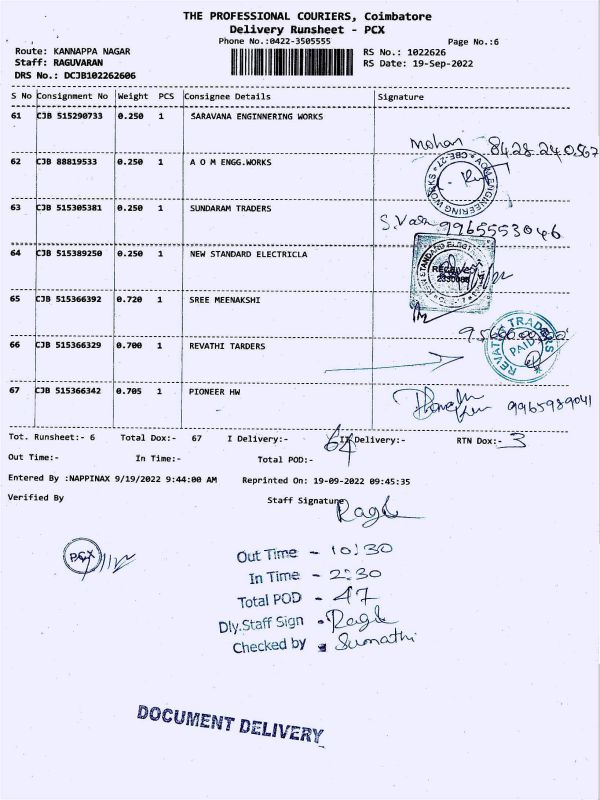 THE PROFESSIONAL COURIERS, Coimbatore
Delivery Runsheet - PCX
Phone No.:0422-3505555
Page No.:6
Route: KANNAPPA NAGAR
RS No.: 1022626
Staff: RAGUVARAN
RS Date: 19-Sep-2022
DRS No.: DCJB102262606
S No Consignment No Weight PCS Consignee Details Signature
61 CJB 515290733 0.250 1 SARAVANA ENGINNERING WORKS
mohan 8428240567
62 CJB 88819533 0.250 1 A O M ENGG.WORKS
AOM ENGINEERING WORKS * CBE-27 *
63 CJB 515305381 0.250 1 SUNDARAM TRADERS
9965553046
64 CJB 515389250 0.250 1 NEW STANDARD ELECTRICLA
RECEIVED
65 CJB 515366392 0.720 1 SREE MEENAKSHI
66 CJB 515366329 0.700 1 REVATHI TARDERS
REVATHI TRADERS
PAID
67 CJB 515366342 0.705 1 PIONEER HW
9965989041
Tot. Runsheet:- 6 Total Dox:- 67 I Delivery:- 64 II Delivery:- RTN Dox:- 3
Out Time:- In Time:- Total POD:-
Entered By :NAPPINAX 9/19/2022 9:44:00 AM Reprinted On: 19-09-2022 09:45:35
Verified By Staff Signature
Ragu
PCX
Out Time - 10:30
In Time - 2:30
Total POD - 47
Dly.Staff Sign - Ragu
Checked by - Sumathi
DOCUMENT DELIVERY